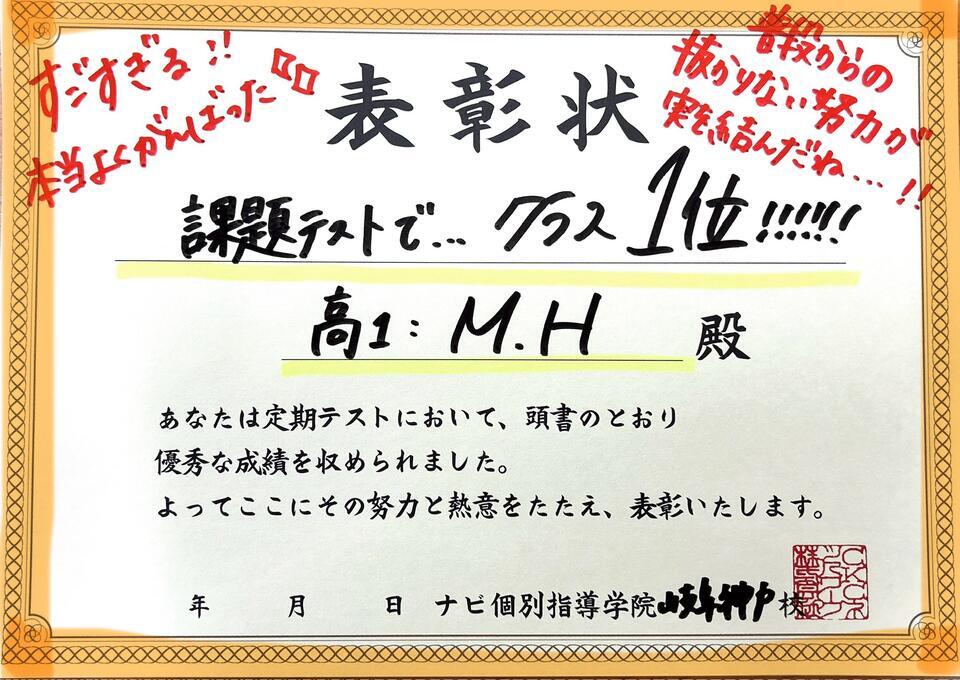 すごすぎる!!
本当よくがんばった
普段からの
抜かりない努力が
実を結んだね...!!
表彰状
課題テストで... クラス1位!!!!!!
高1: M.H 殿
あなたは定期テストにおいて、頭書のとおり
優秀な成績を収められました。
よってここにその努力と熱意をたたえ、表彰いたします。
年 月 日 ナビ個別指導学院岐阜神戸校